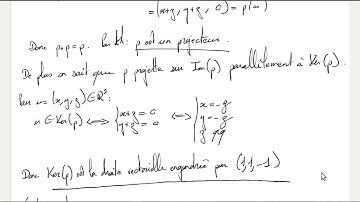 = (x+z, y+z, 0) = p(u)
Donc p∘p = p. p est un projecteur.
De plus on sait que p projette sur Im(p) parallèlement à Ker(p).
u = (x, y, z) ∈ ℝ³:
u ∈ Ker(p) ⟺ { x+z = 0 ⟺ { x = -z
y+z = 0 y = -z
z qq
Donc Ker(p) est la droite vectorielle engendrée par (1,1,-1)